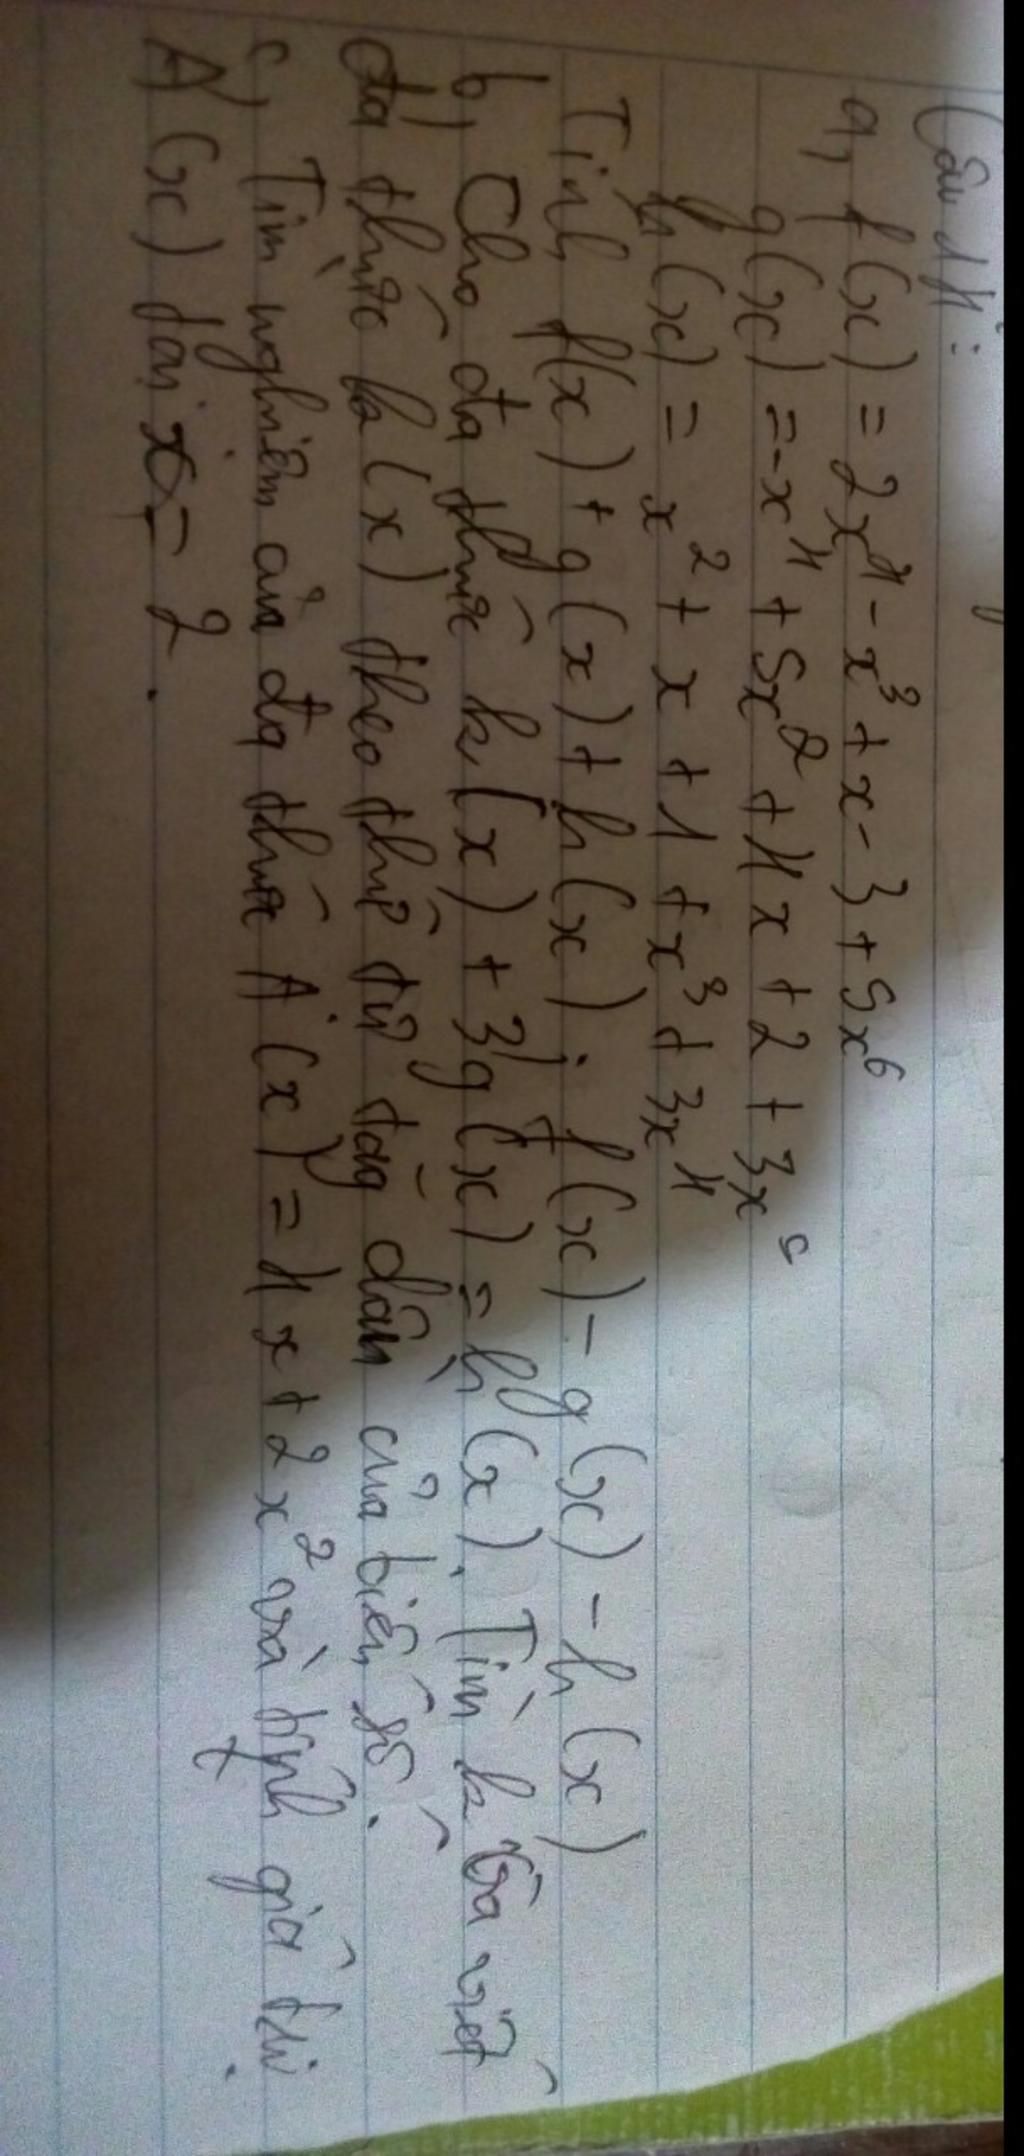 Câu 4:
a, f(x) = 2x⁴ - x³ + x - 3 + 5x⁶
g(x) = -x⁴ + 5x² + 4x + 2 + 3x⁵
h(x) = x² + x + 1 + x³ + 3x⁴
Tính f(x) + g(x) + h(x) ; f(x) - g(x) - h(x)
b) Cho đa thức k(x) + 3g(x) = h(x). Tìm k và viết
đa thức k(x) theo thứ tự tăg dần của biến số.
c, Tìm nghiệm của đa thức A(x) = 4x + 2x² và tính giá trị
A(x) tại x = 2.